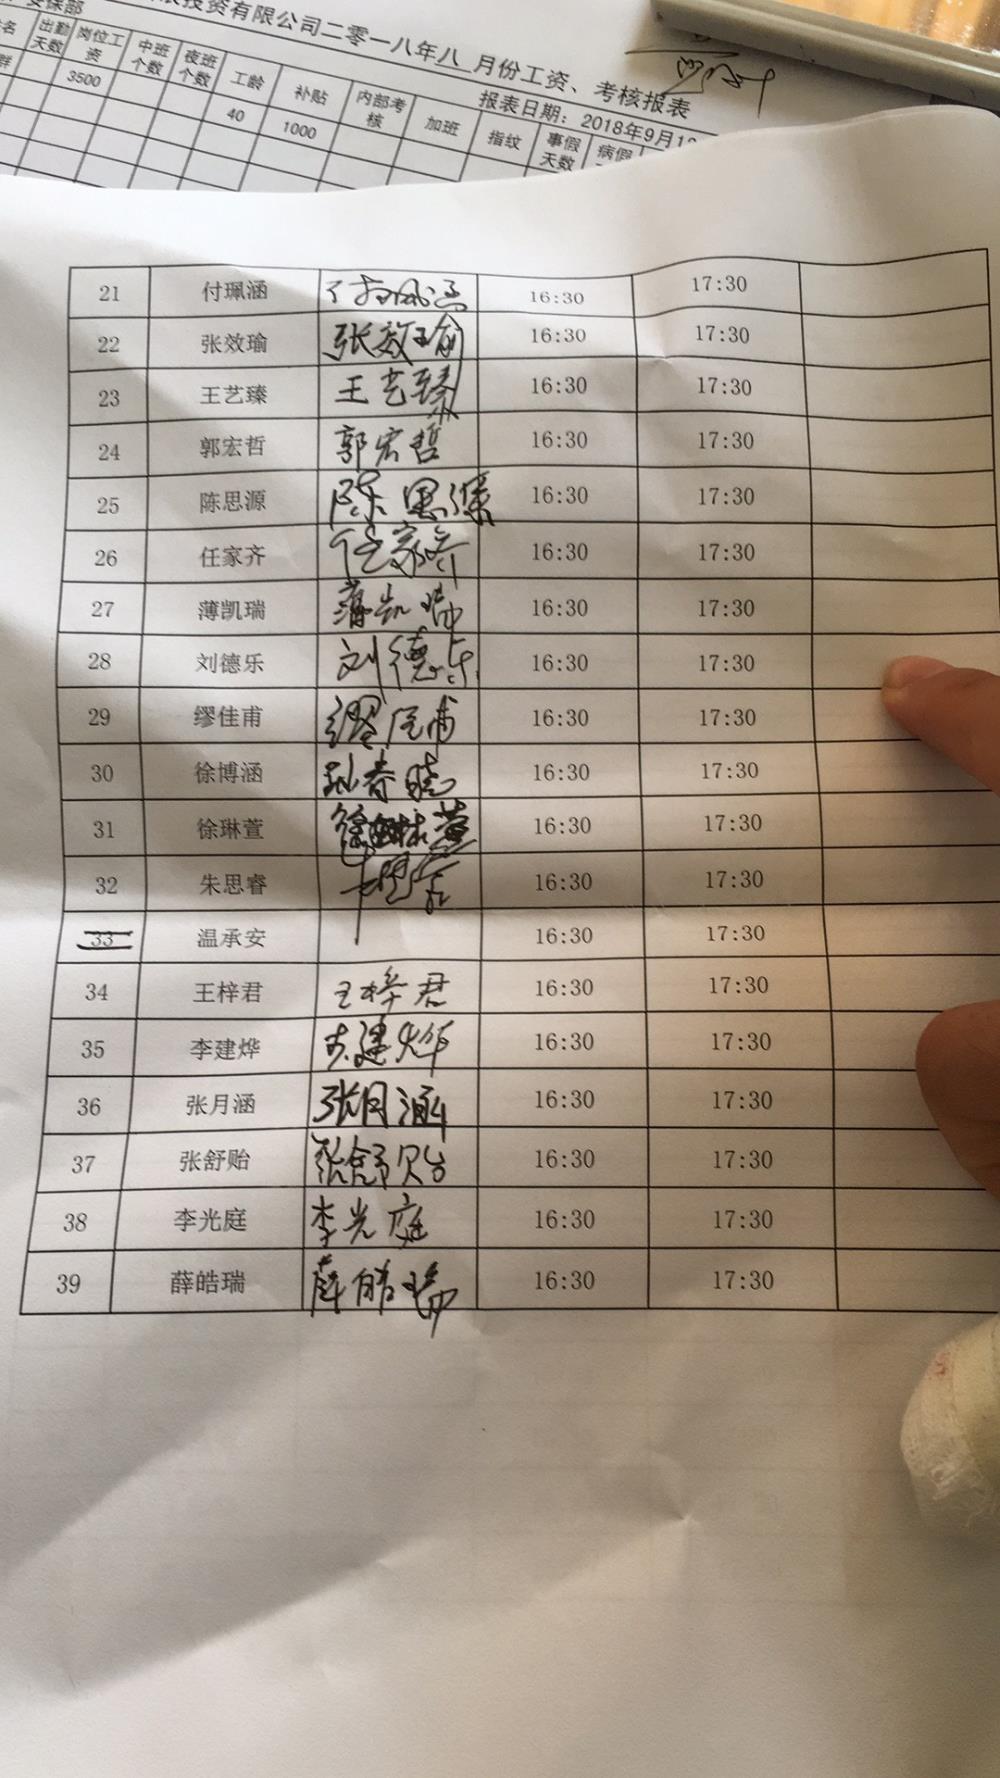 安保部
投资有限公司二零一八年八 月份工资、考核报表
报表日期：2018年9月1
出勤天数 岗位工资 中班个数 夜班个数 工龄 补贴 内部考核 加班 指纹 事假天数 病假
3500 40 1000
21 付珮涵 16:30 17:30
22 张效瑜 张效瑜 16:30 17:30
23 王艺臻 王艺臻 16:30 17:30
24 郭宏哲 郭宏哲 16:30 17:30
25 陈思源 陈思源 16:30 17:30
26 任家齐 任家齐 16:30 17:30
27 薄凯瑞 薄凯瑞 16:30 17:30
28 刘德乐 刘德乐 16:30 17:30
29 缪佳甫 16:30 17:30
30 徐博涵 孙春晓 16:30 17:30
31 徐琳萱 徐琳萱 16:30 17:30
32 朱思睿 16:30 17:30
33 温承安 16:30 17:30
34 王梓君 王梓君 16:30 17:30
35 李建烨 李建烨 16:30 17:30
36 张月涵 张月涵 16:30 17:30
37 张舒贻 张舒贻 16:30 17:30
38 李光庭 李光庭 16:30 17:30
39 薛皓瑞 薛皓瑞 16:30 17:30